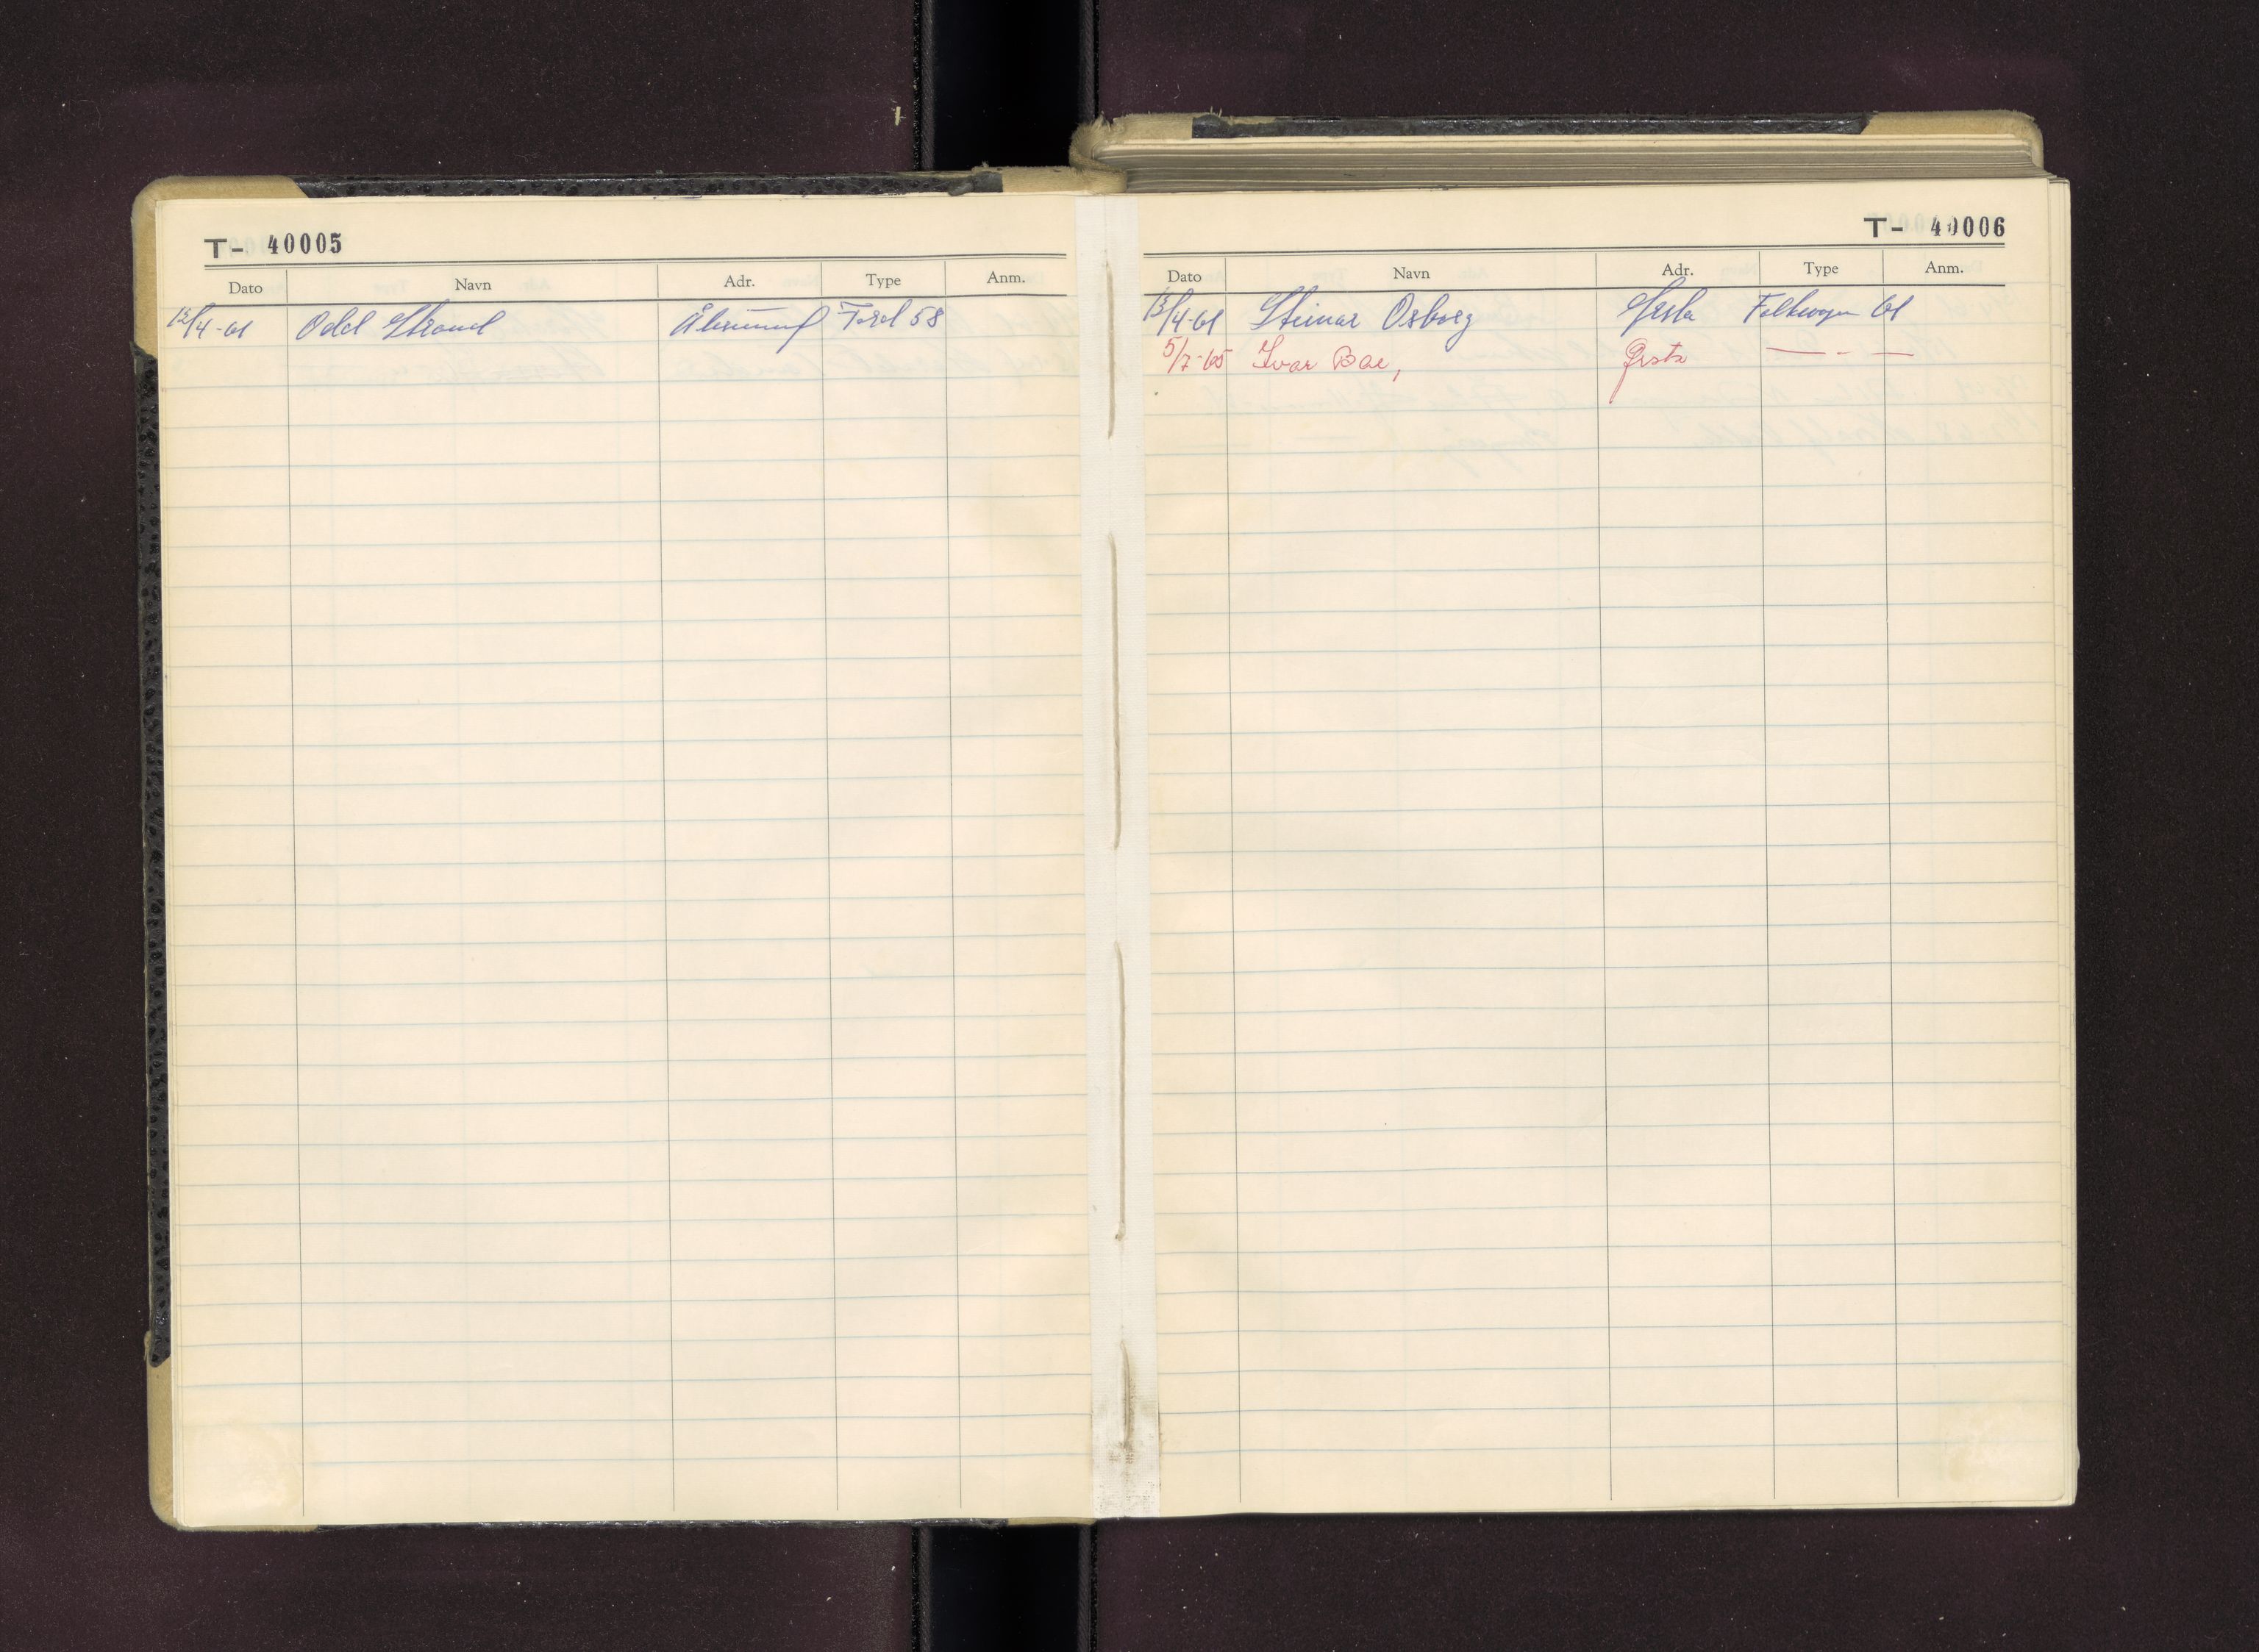 T- 40005
Dato Navn Adr. Type Anm.
12/4-61 Odd Strand Ford 58
T- 40006
Dato Navn Adr. Type Anm.
13/4-61 Steinar Osborg Ørsta Folkevogn 61
5/7-65 Ivar Boe, Ørsta — - —